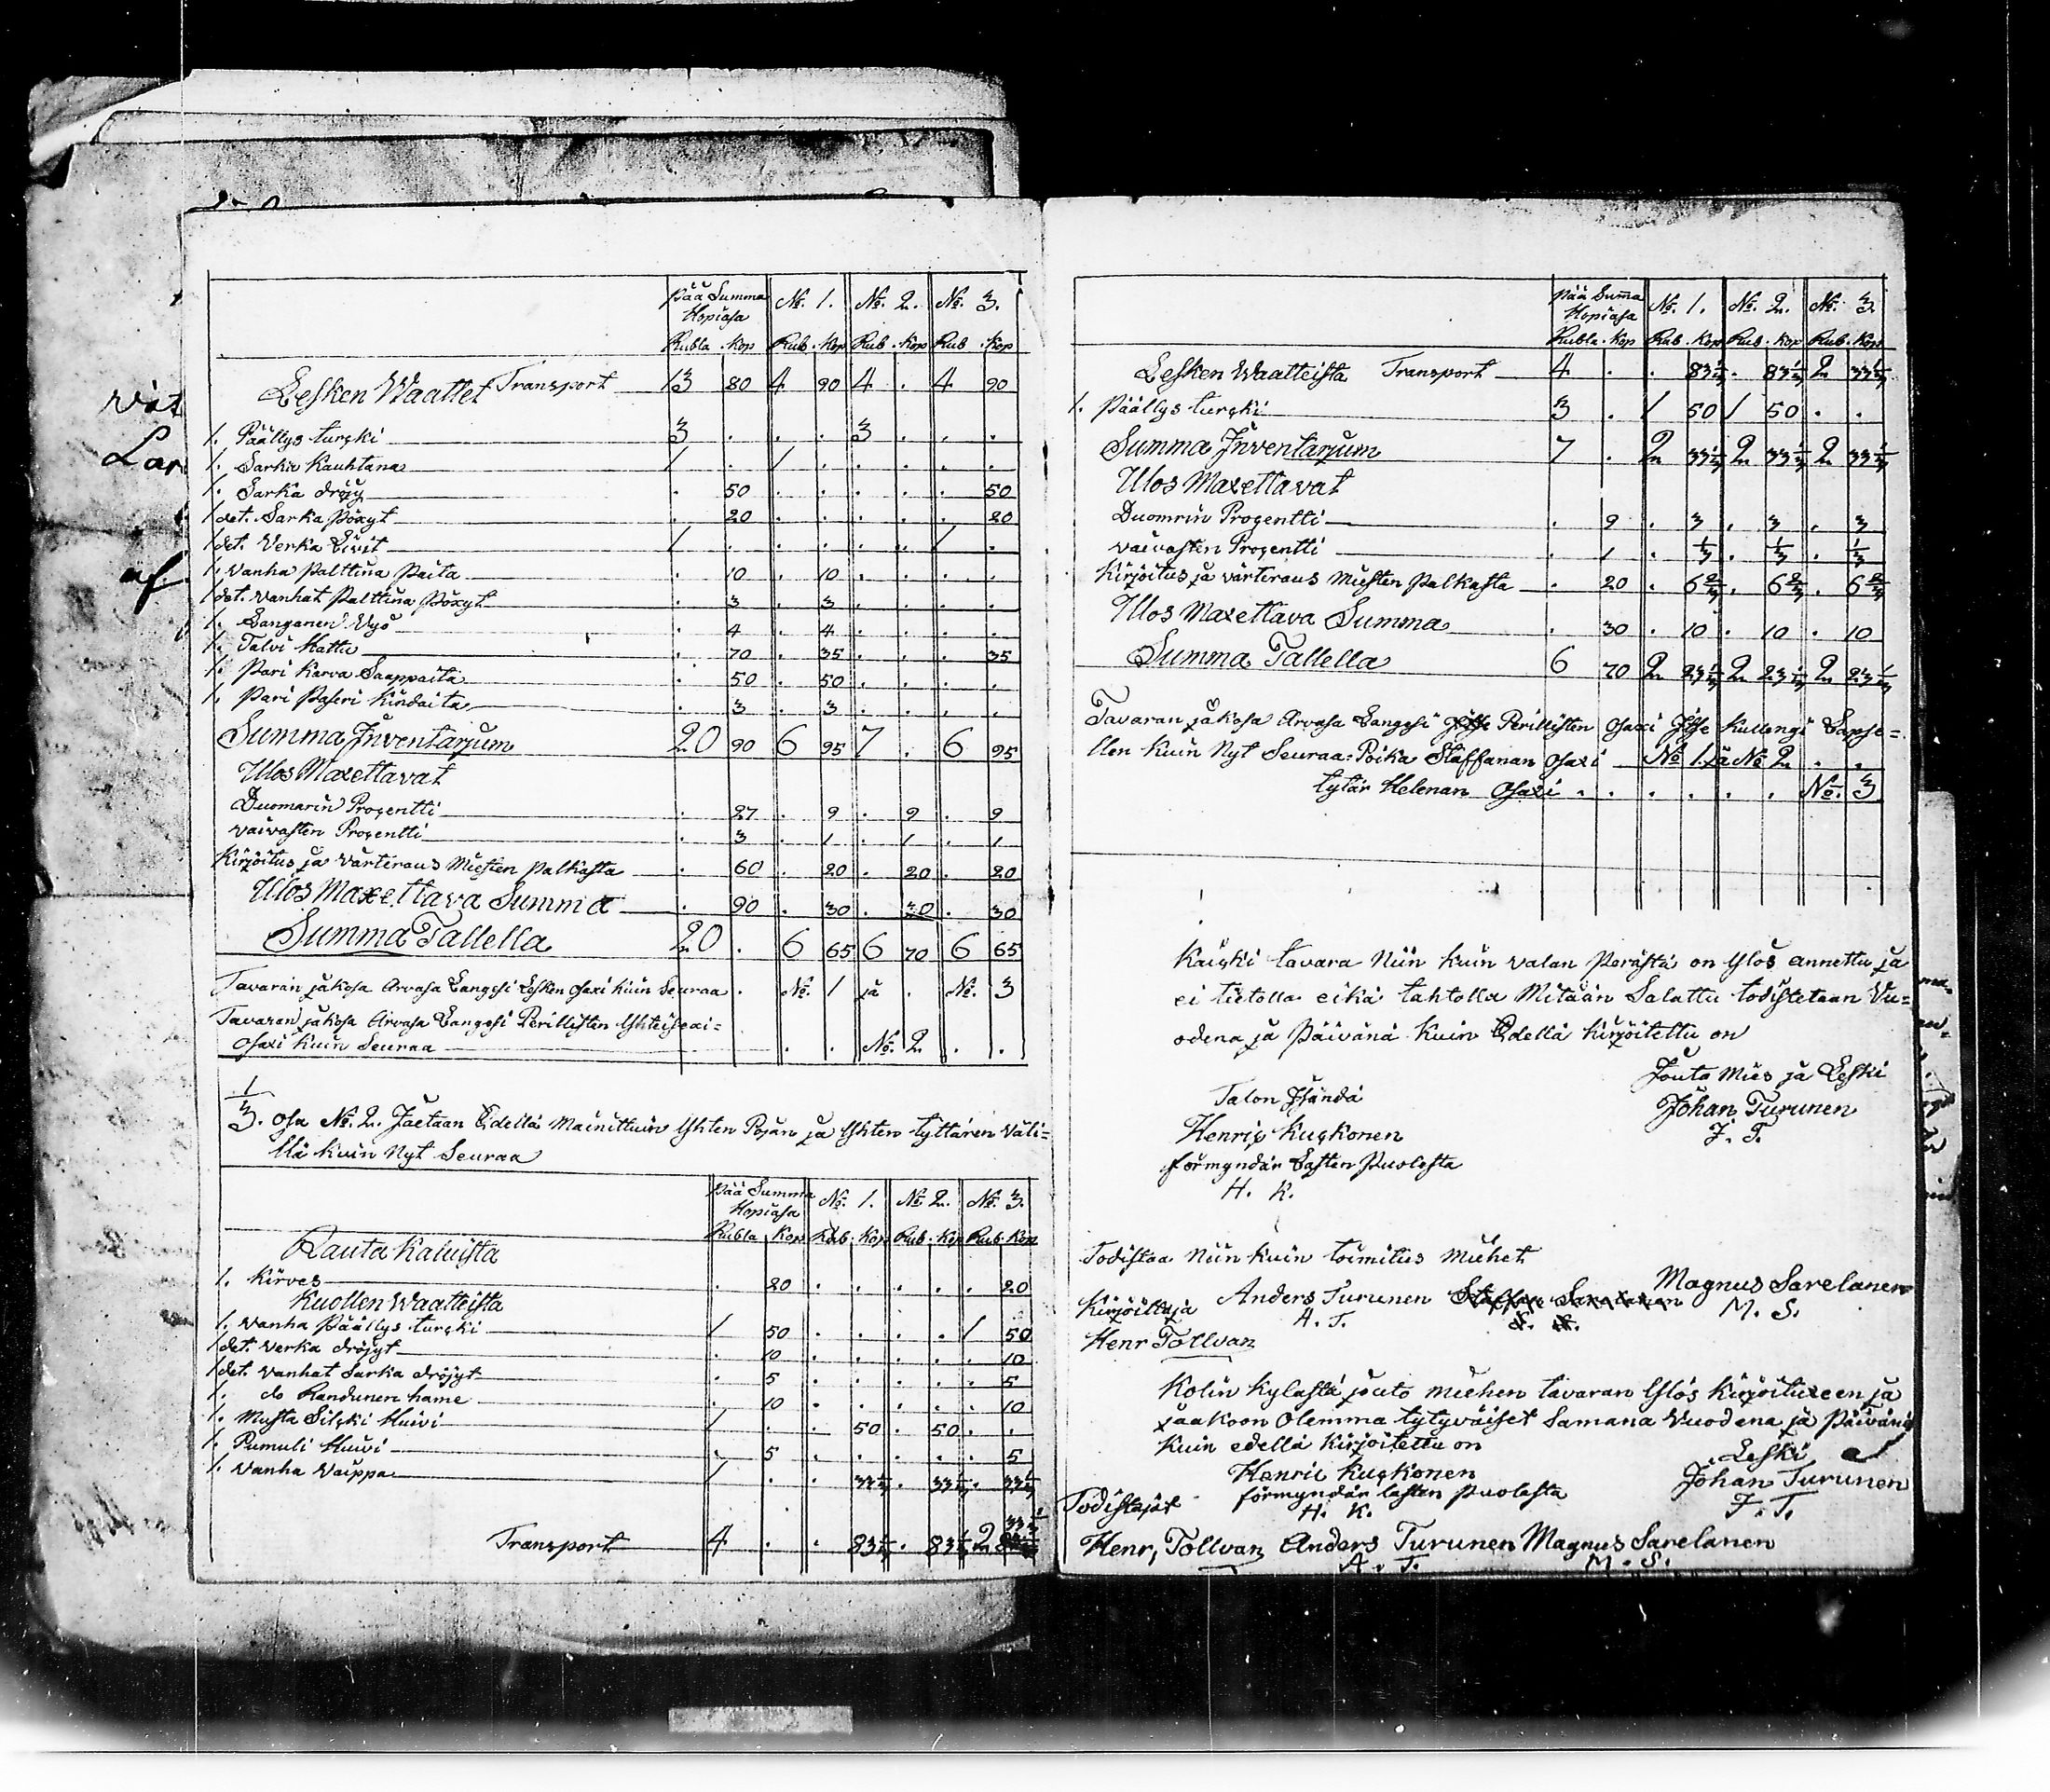 Pää Summa Hopiasa No. 1. No. 2. No. 3.
Rubla . Kop Rub . Kop Rub . Kop Rub . Kop
Lesken Waattet Transport 13 80 4 90 4 . 4 90
1. Päällys turski 3 . . . 3 . . .
1. Sarka Kauhtana 1 . 1 . . . . .
1. Sarka dröjy . 50 . . . . . 50
1 det. Sarka Pöxyt . 20 . . . . . 20
1 det. Verka Livit 1 . . . . . 1 .
1. vanha Palttina Paita . 10 . 10 . . . .
1 det. vanhat Palttina Pöxyt . 3 . 3 . . . .
1. Langanen Vyö . 4 . 4 . . . .
1. Talvi Hattu . 70 . 35 . . . 35
1. Pari Karva Saappaita . 50 . 50 . . . .
1. Pari Paseri Kindaita . 3 . 3 . . . .
Summa Inventarjum 20 90 6 95 7 . 6 95
Ulos Maxettavat
Duomarin Prosentti . 27 . 9 . 9 . 9
vaivasten Prosentti . 3 . 1 . 1 . 1
Kirjoitus ja värtiraus Miesten Palkasta . 60 . 20 . 20 . 20
Ulos Maxettava Summa . 90 . 30 . 30 . 30
Summa Tallella 20 . 6 65 6 70 6 65
Tavaran jakosa Arvasa Langesi Lesken Osaxi kuin Seuraa . No. 1 ja . No. 3
Tavaran jakosa Arvasa Langesi Perillisten Yhteisexi=
Osaxi kuin Seuraa . . No. 2 . .
1/3. Osa No. 2. Jaetaan Edellä Mainittuin Yhten Pojan ja Yhten tyttären väli=
llä kuin Nyt Seuraa
Pää Summa Hopiasa No. 1. No. 2. No. 3.
Rubla Kop Rub . Kop Rub . Kop Rub Kop
Rauta Kaluista
1. Kirves . 20 . . . . . 20
Kuollen Waatteista
1. vanha Päällys turski 1 50 . . . . 1 50
1 det. verka dröjyt . 10 . . . . . 10
1 det. vanhat Sarka dröjyt . 5 . . . . . 5
1. do Randunen hame . 10 . . . . . 10
1. Musta Silcki Huivi 1 . . 50 . 50 . .
1. Pumuli Huivi . 5 . . . . . 5
1. vanha Vaippa 1 . . 33 1/3 . 33 1/3 . 33 1/3
Transport 4 . . 83 1/3 . 83 1/3 2 33 1/3
Pää Summa Hopiasa No. 1. No. 2. No. 3.
Rubla . Kop Rub . Kop Rub . Kop Rub . Kop
Lesken Waatteista Transport 4 . . 83 1/3 . 83 1/3 2 33 1/3
1. Päällys turski 3 . 1 50 1 50 . .
Summa Inventarjum 7 . 2 33 1/3 2 33 1/3 2 33 1/3
Ulos Maxettavat
Duomrin Prosentti . 9 . 3 . 3 . 3
vaivasten Prosentti . 1 . 1/3 . 1/3 . 1/3
Kirjoitus ja värtiraus Miesten Palkasta . 20 . 6 2/3 . 6 2/3 . 6 2/3
Ulos Maxettava Summa . 30 . 10 . 10 . 10
Summa Tallella 6 70 2 23 1/3 2 23 1/3 2 23 1/3
Tavaran jakosa Arvasa Langesi Perillisten Osaxi Itse Kullengi Lapse=
llen kuin Nyt Seuraa: Poika Staffanan Osaxi No 1. ja No 2 . .
tytär Helenan Osaxi . . . . . . No. 3
Kaicki tavara Niin kuin valan Perästä on Ylös annettu ja
ei tietolla eikä tahtolla Mitään Salattu todistetaan Vu=
odena ja Päivänä kuin Edellä kirjoitettu on
Talon Isändä
Jouto Mies ja Leski
Henric Kuckonen
Johan Turunen
J. T.
förmyndär Lasten Puolesta
H. K.
Todistaa Niin kuin toimitus Miehet
Kirjoittaja Anders Turunen Magnus Sarelanen
A. T. M. S.
Henr Tollvan
Kolin kylästä jouto miehen tavaran Ylös kirjoituxeen ja
jaakoon Olemma tytyväiset Samana Vuodena ja Päivänä
kuin edellä kirjoitettu on
Leski
Henric Kuckonen Johan Turunen
förmyndär lasten puolesta J. T.
Todistajat H. K.
Henr, Tollvan Anders Turunen Magnus Sarelanen
A. T. M. S.